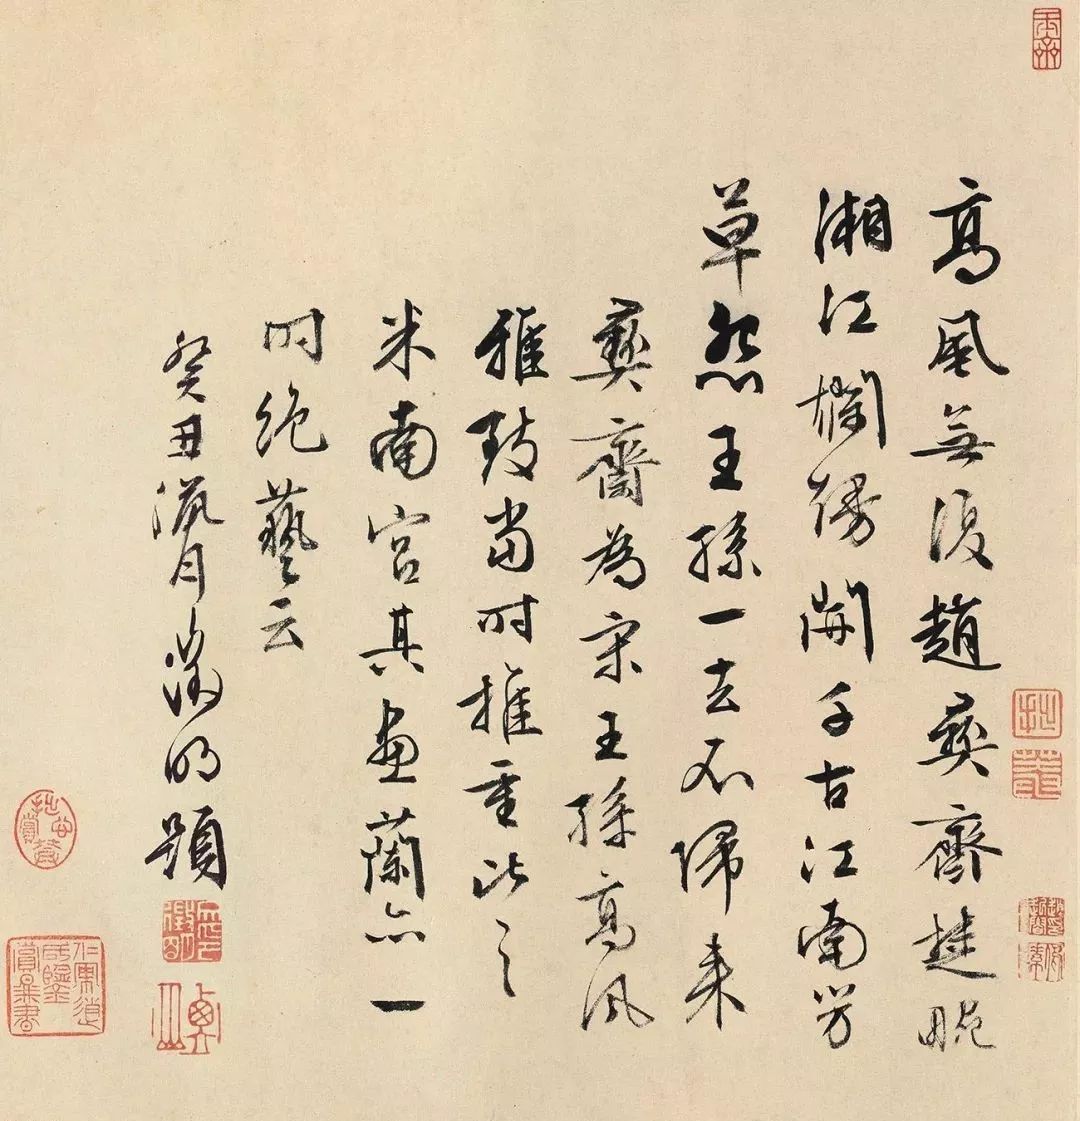 高風無復趙彝齋楚畹
湘江爛熳開千古江南芳
草怨王孫一去不歸來
彝齋為宋王孫高風
雅致當時推重比之
米南宮其畫蘭亦一
時絕藝云
癸丑臘月徵明題